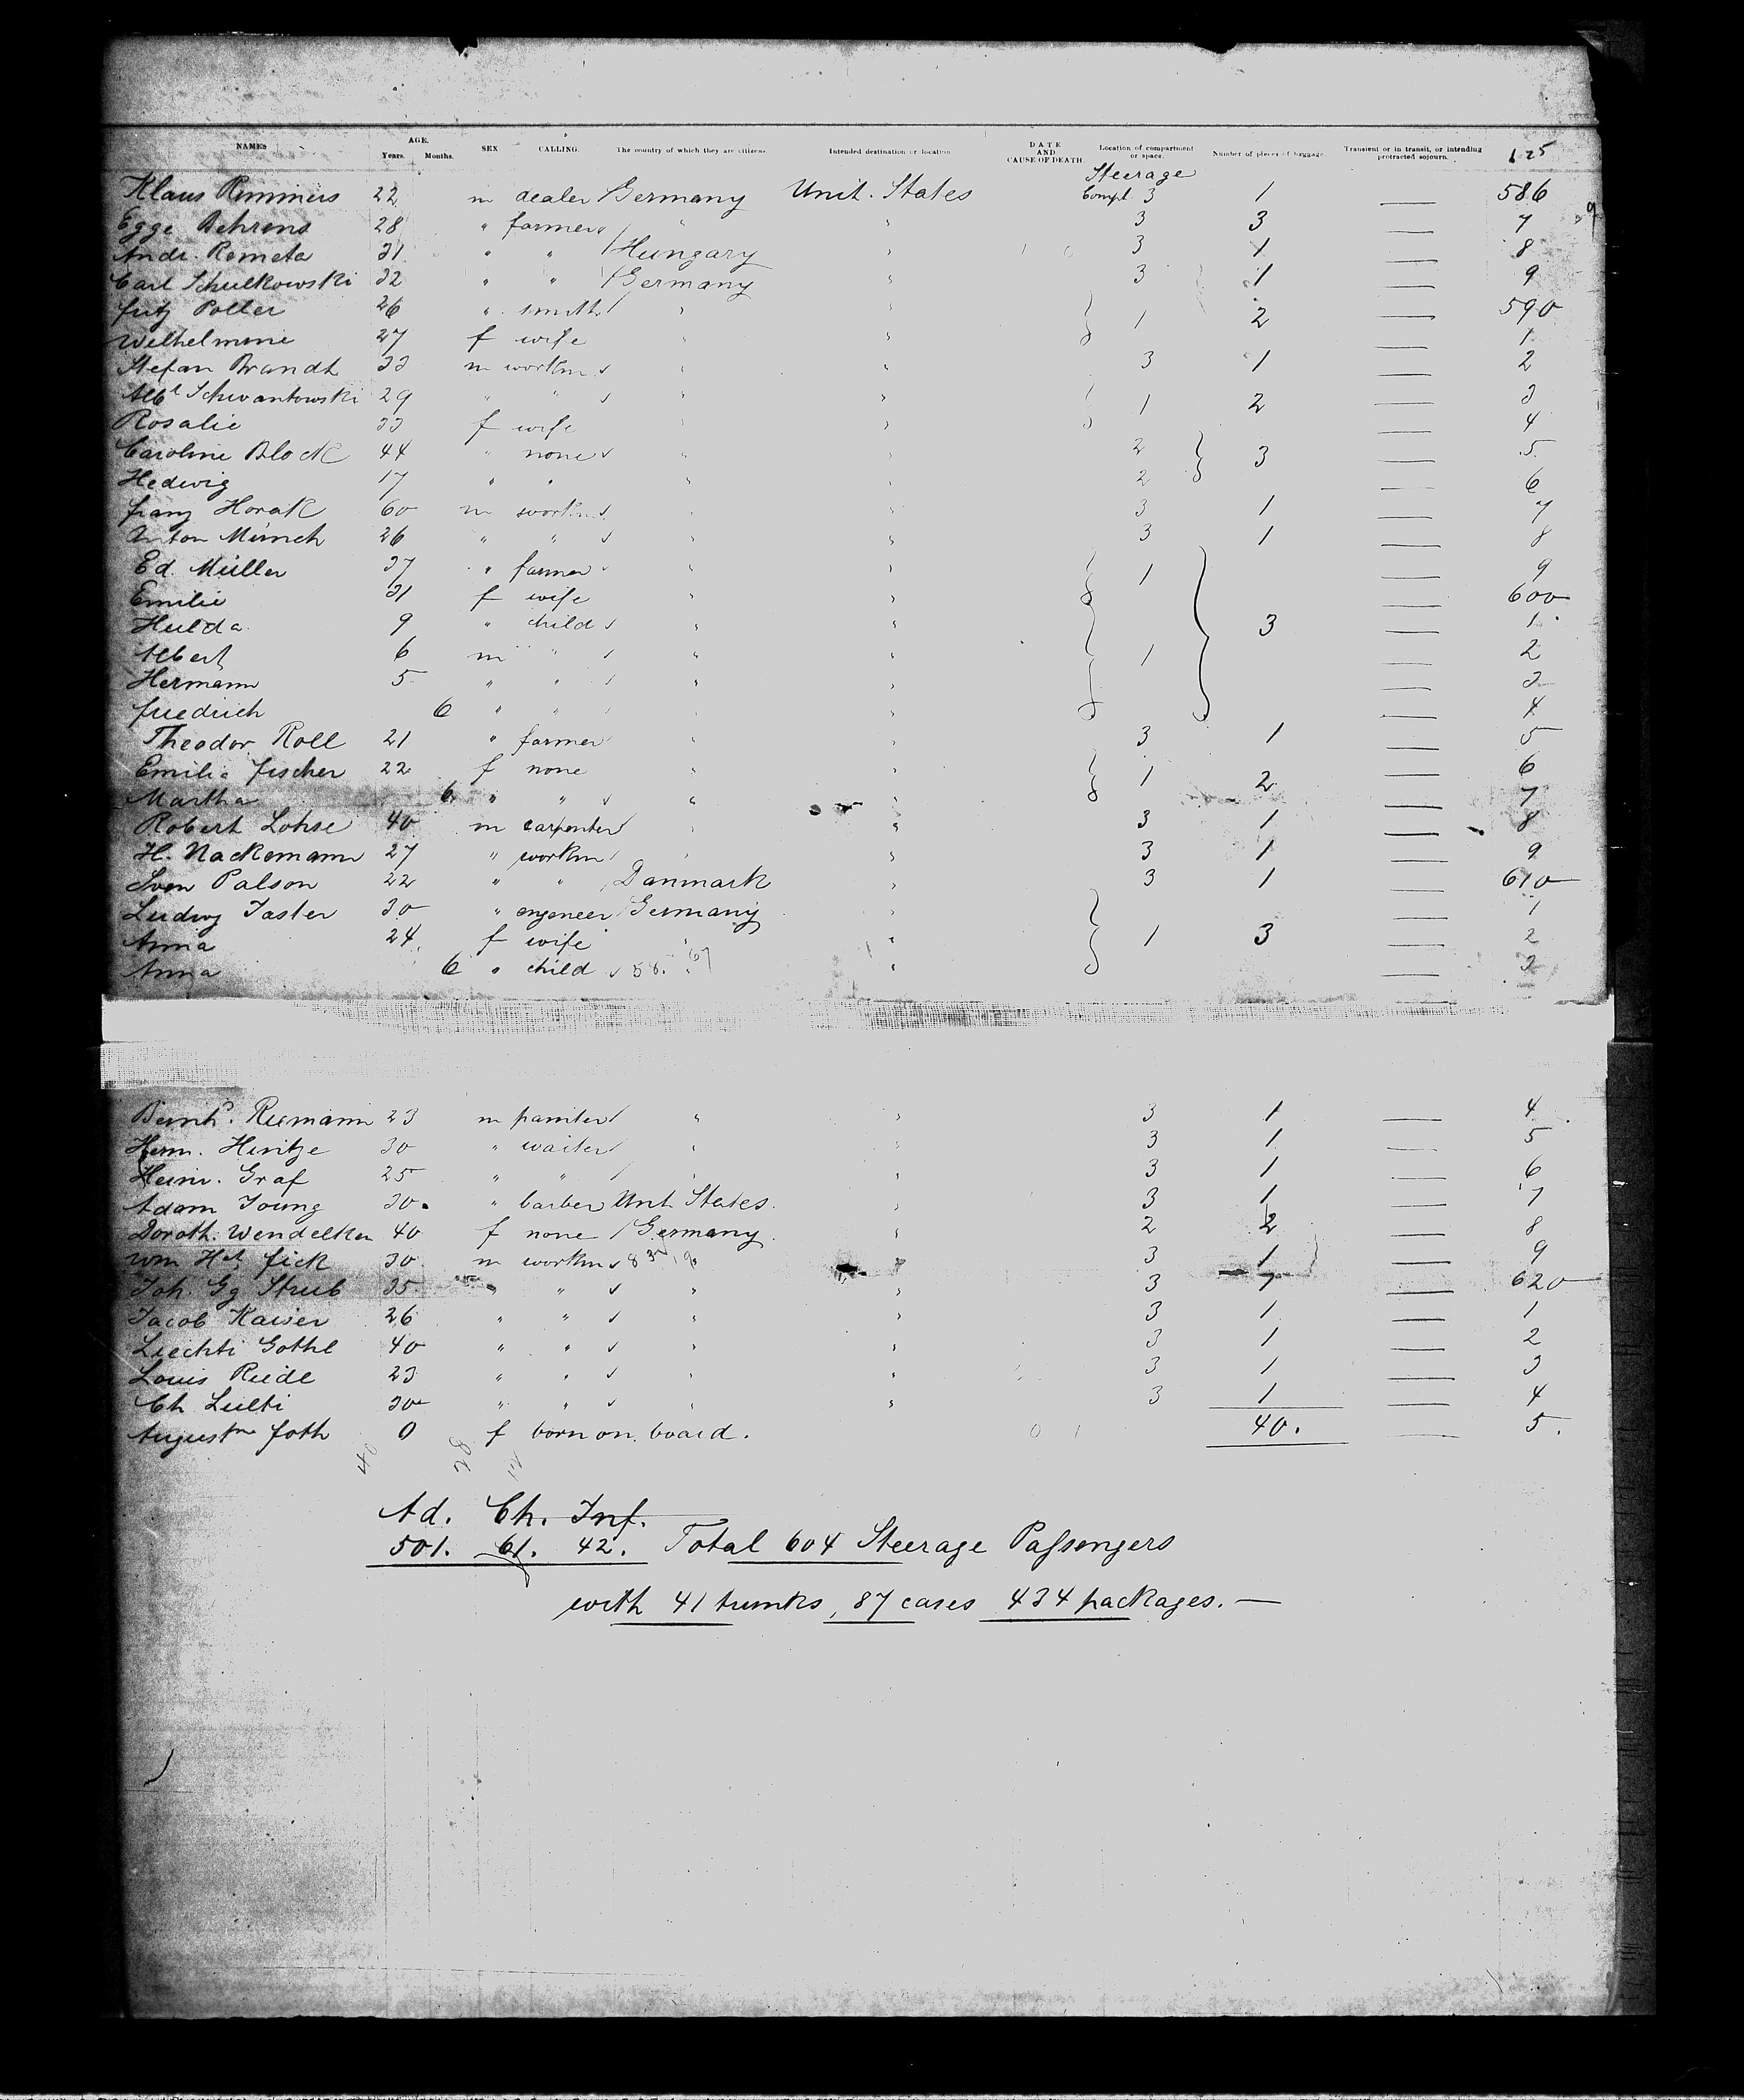 NAMES AGE. Years. Months. SEX CALLING. The country of which they are citizens. Intended destination or location DATE AND CAUSE OF DEATH. Location of compartment or space. Number of pieces of baggage. Transient or in transit, or intending protracted sojourn.
Steerage
Klaus Remmers 22 m dealer Germany Unit. States Compt 3 1 — 586
Egge Behrens 28 " farmer " " 3 3 — 7
Andr. Remeta 31 " " Hungary " 3 1 — 8
Carl Schulkowski 32 " " Germany " 3 1 — 9
Fritz Poller 26 " smith " " 1 2 — 590
Wilhelmine 27 f wife " " — 1
Stefan Brandt 33 m workm " " 3 1 — 2
Albt Schwantowski 29 " " " " 1 2 — 3
Rosalie 33 f wife " " — 4
Caroline Block 44 " none " " 2 3 — 5
Hedwig 17 " " " " 2 — 6
Franz Horak 60 m workm " " 3 1 — 7
Anton Münch 26 " " " " 3 1 — 8
Ed. Müller 37 " farmer " " 1 — 9
Emilie 31 f wife " " — 600
Hulda 9 " child " " 3 — 1
Albert 6 m " " " 1 — 2
Hermann 5 " " " " — 3
Friedrich 6 " " " " — 4
Theodor Roll 21 " farmer " " 3 1 — 5
Emilie Fischer 22 f none " " 1 2 — 6
Martha 6 " " " " — 7
Robert Lohse 40 m carpenter " " 3 1 — 8
H. Nackemann 27 " workm " " 3 1 — 9
Sven Palson 22 " " Danmark " 3 1 — 610
Ludwig Jaster 30 " engeneer Germany " — 1
Anna 24 f wife " " 1 3 — 2
Anna 6 " child " " — 3
Bernhd. Riemann 23 m painter " " 3 1 — 4
Herm. Hintze 30 " waiter " " 3 1 — 5
Heinr. Graf 25 " " " " 3 1 — 6
Adam Young 30 " barber Unit States " 3 1 — 7
Doroth. Wendelken 40 f none Germany " 2 2 — 8
Wm Hch Fick 30 m workm " " 3 1 — 9
Joh. Gg Strub 35 " " " " 3 1 — 620
Jacob Kaiser 26 " " " " 3 1 — 1
Liechti Gothl 40 " " " " 3 1 — 2
Louis Riede 23 " " " " 3 1 — 3
Ch 30 " " " " 3 1 — 4
Foth 0 f born on board. 40. — 5.
Ad. Ch. Inf.
501. 61. 42. Total 604 Steerage Passengers
with 41 trunks, 87 cases 434 packages. —